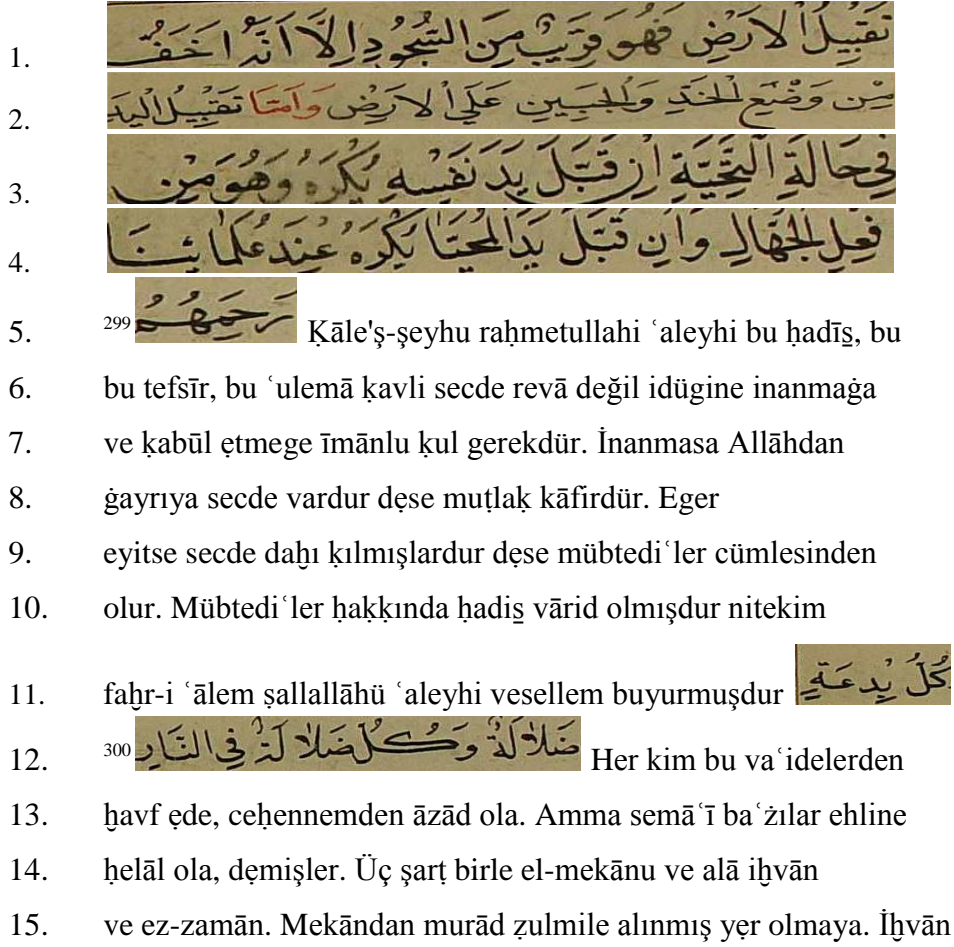 1. تَقْبِيلُ الْاَرْضِ فَهُوَ قَرِيبٌ مِنَ السُّجُودِ اِلَّا اَنَّهُ اَخَفُّ
2. مِنْ وَضْعِ الْخَدِّ وَالْجَبِينِ عَلَى الْاَرْضِ وَاَمَّا تَقْبِيلُ الْيَدِ
3. فِي حَالَةِ التَّحِيَّةِ اِنْ قَبَّلَ يَدَ نَفْسِهِ يُكْرَهُ وَهُوَ مِنْ
4. فِعْلِ الْجُهَّالِ وَاِنْ قَبَّلَ يَدَ الْمُحَيَّا يُكْرَهُ عِنْدَ عُلَمَائِنَا
5. 299 رَحِمَهُمُ Ḳāle'ş-şeyhu raḥmetullahi ʿaleyhi bu ḥadīs̱, bu
6. bu tefsīr, bu ʿulemā ḳavli secde revā değil idügine inanmaġa
7. ve ḳabūl ẹtmege īmānlu ḳul gerekdür. İnanmasa Allāhdan
8. ġayrıya secde vardur dẹse muṭlaḳ kāfirdür. Eger
9. eyitse secde daḫı ḳılmışlardur dẹse mübtediʿler cümlesinden
10. olur. Mübtediʿler ḥaḳḳında ḥadis̱ vārid olmışdur nitekim
11. faḫr-i ʿālem ṣallallāhü ʿaleyhi vesellem buyurmuşdur كُلُّ بِدْعَةٍ
12. 300 ضَلَالَةٌ وَكُلُّ ضَلَالَةٌ فِي النَّارِ Her kim bu vaʿidelerden
13. ḫavf ẹde, ceḥennemden āzād ola. Amma semāʿī baʿżılar ehline
14. ḥelāl ola, dẹmişler. Üç şarṭ birle el-mekānu ve alā iḫvān
15. ve ez-zamān. Mekāndan murād ẓulmile alınmış yẹr olmaya. İḫvān